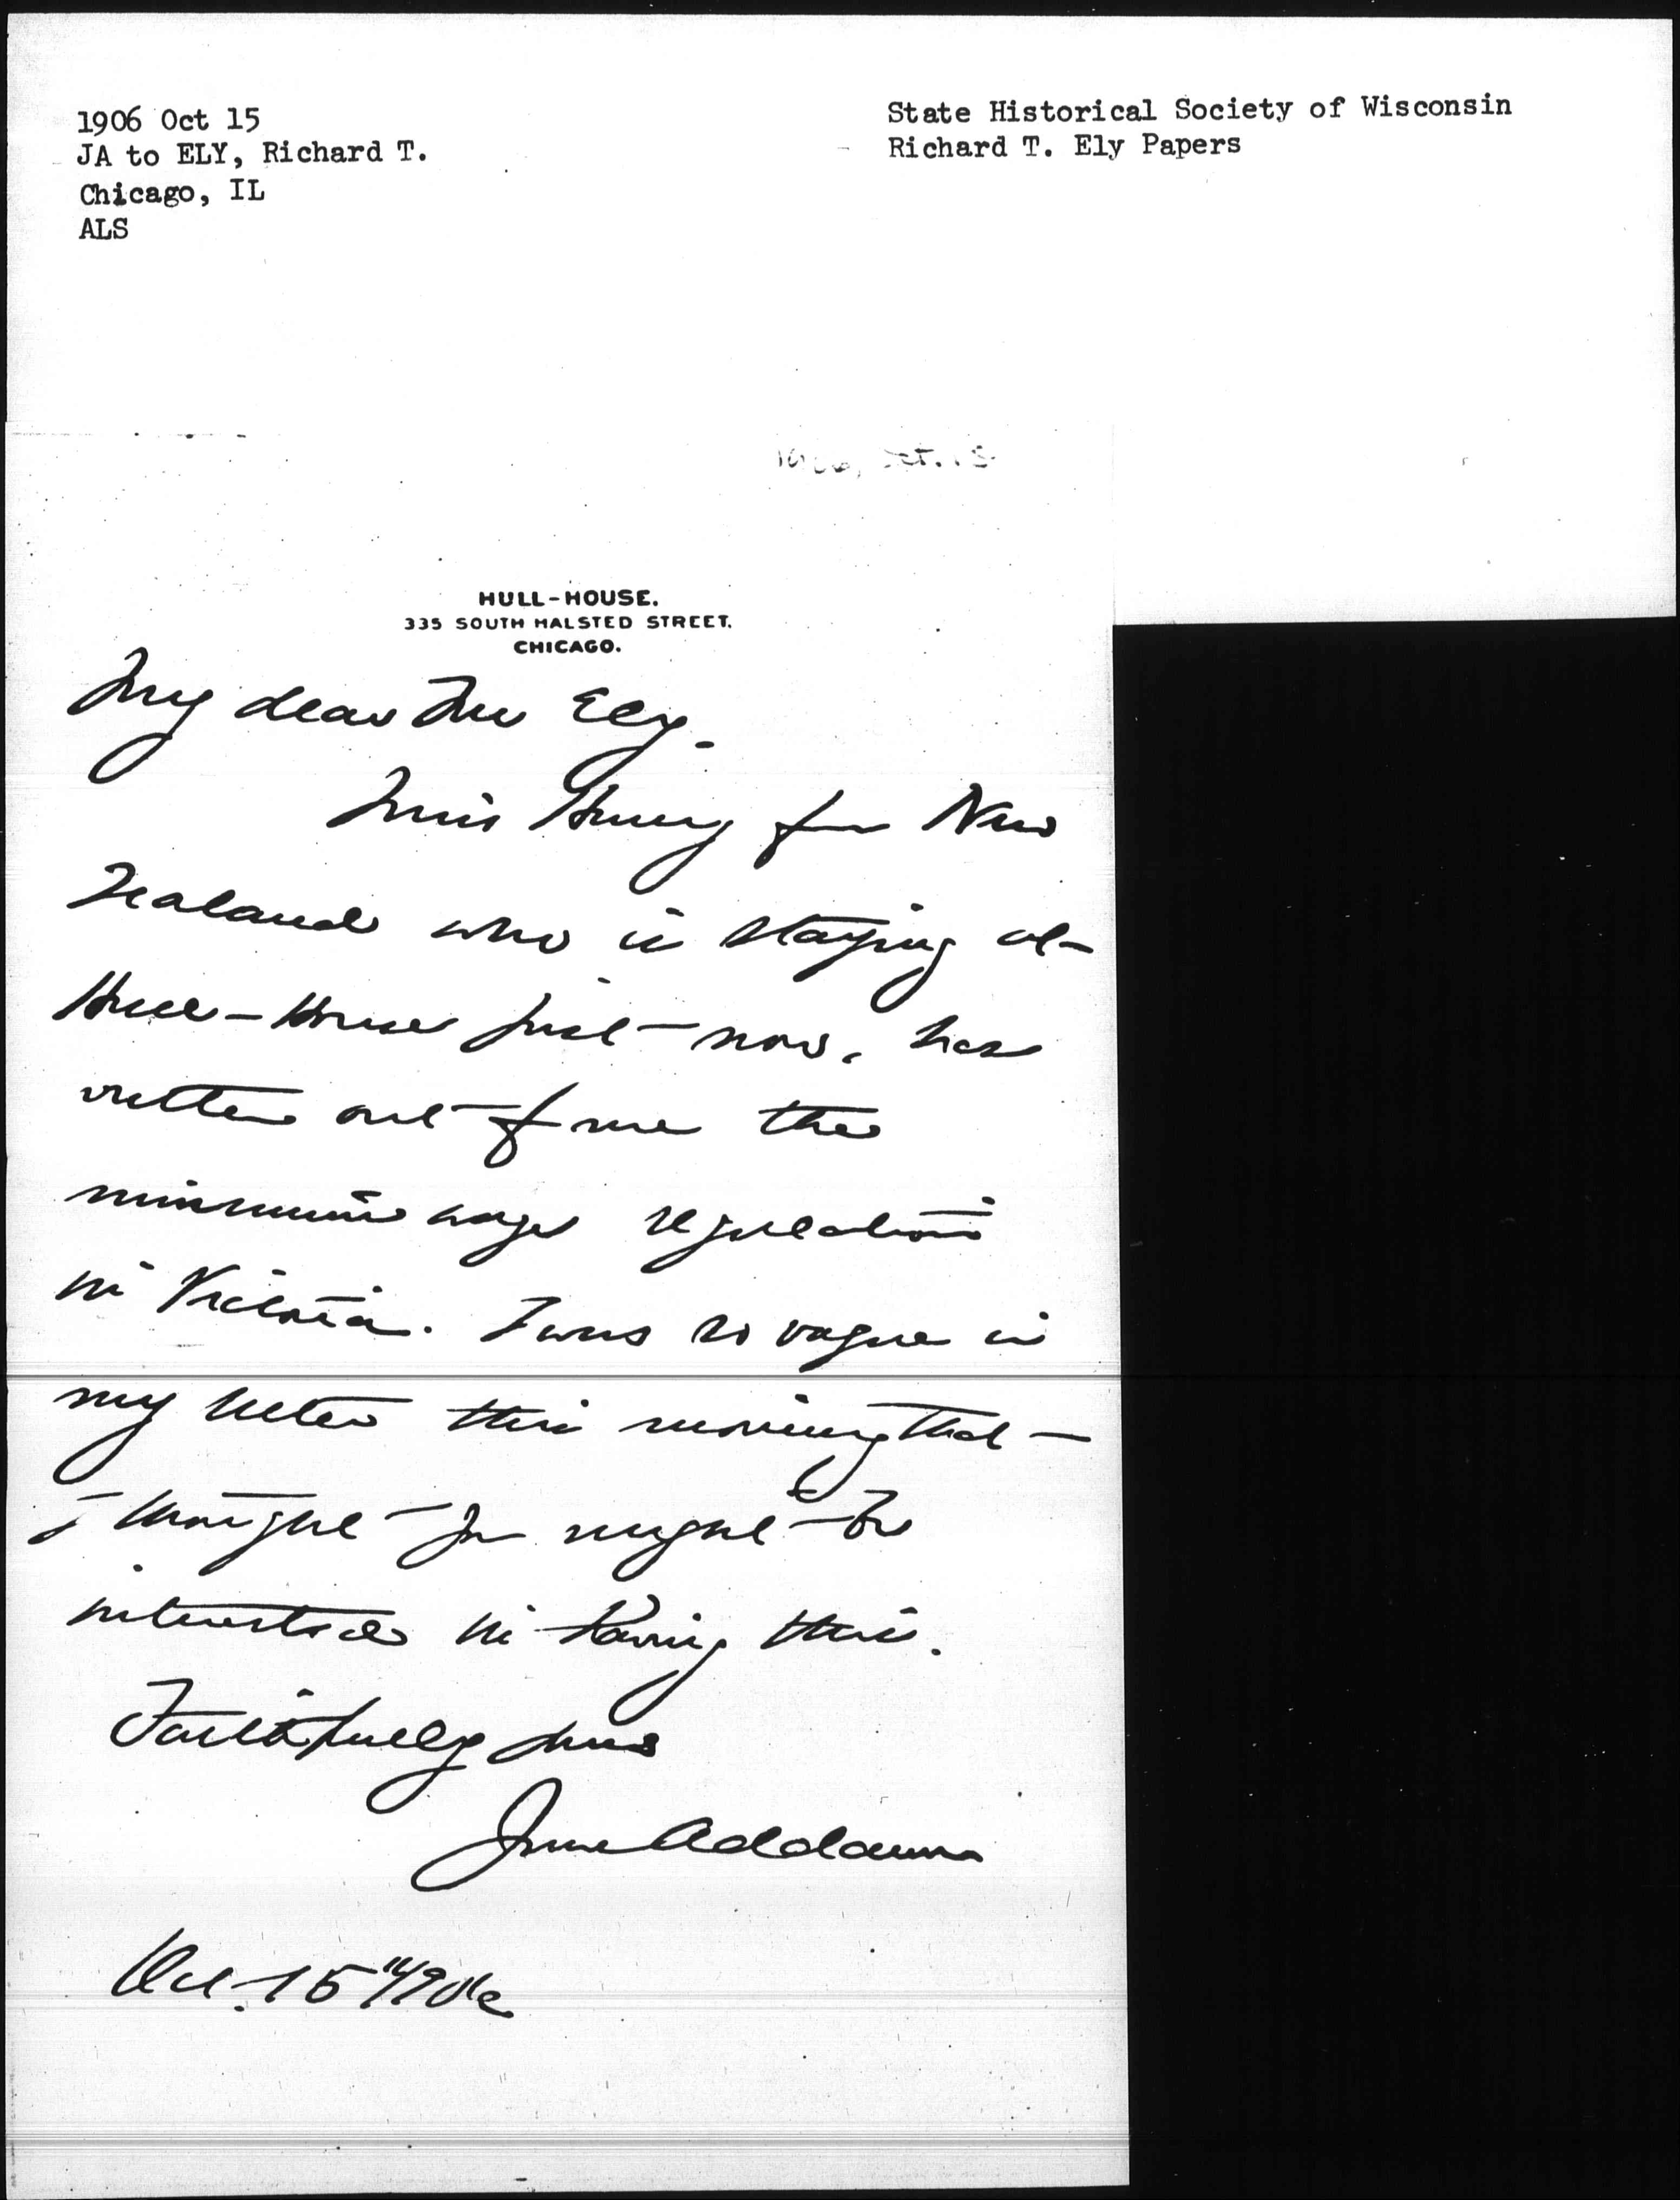 1906 Oct 15
JA to ELY, Richard T.
Chicago, IL
ALS
State Historical Society of Wisconsin
Richard T. Ely Papers
HULL-HOUSE.
335 SOUTH HALSTED STREET.
CHICAGO.
My dear Mr Ely.
Miss Henry from New
Zealand who is staying at
Hull-House just now, has
written out for me the
minimum wage regulations
in Victoria. I was so vague in
my letter this morning that
I thought you might be
interested in having this.
Faithfully yours
Jane Addams
Oct. 15" 1906